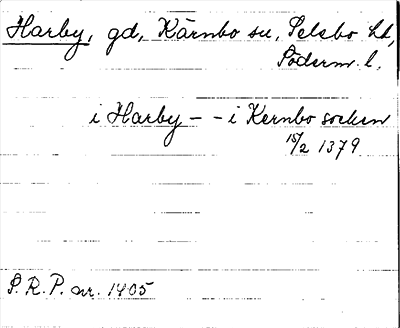 Harby, gd, Kärnbo sn, Selebo hd,
Söderm. l.
i Harby - - i Kernbo socken
15/2 1379
S. R. P. nr. 1405